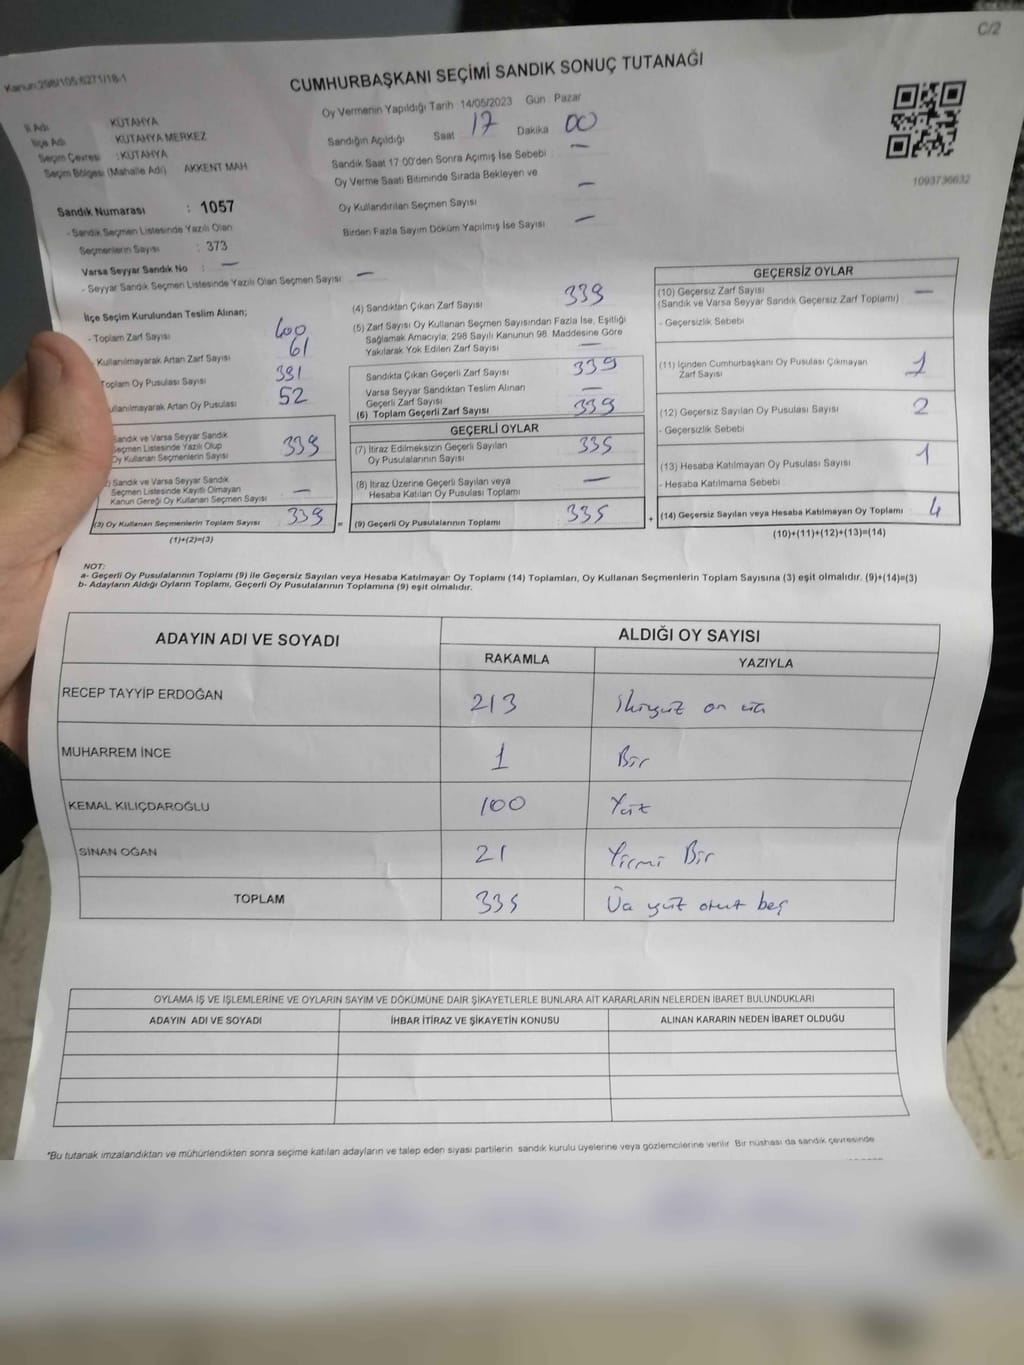 C/2
Kanun:298/105;6271/18-1
CUMHURBAŞKANI SEÇİMİ SANDIK SONUÇ TUTANAĞI
İl Adı KÜTAHYA
İlçe Adı KÜTAHYA MERKEZ
Seçim Çevresi : KÜTAHYA
Seçim Bölgesi (Mahalle Adı) AKKENT MAH
Oy Vermenin Yapıldığı Tarih :14/05/2023 Gün : Pazar
Sandığın Açıldığı Saat 17 Dakika 00
Sandık Saat 17:00'den Sonra Açımış İse Sebebi —
Oy Verme Saati Bitiminde Sırada Bekleyen ve
Oy Kullandırılan Seçmen Sayısı —
Birden Fazla Sayım Döküm Yapılmış İse Sayısı —
1093736632
Sandık Numarası : 1057
- Sandık Seçmen Listesinde Yazılı Olan
Seçmenlerin Sayısı : 373
Varsa Seyyar Sandık No : —
- Seyyar Sandık Seçmen Listesinde Yazılı Olan Seçmen Sayısı —
İlçe Seçim Kurulundan Teslim Alınan;
- Toplam Zarf Sayısı 400
- Kullanılmayarak Artan Zarf Sayısı 61
Toplam Oy Pusulası Sayısı 391
Kullanılmayarak Artan Oy Pusulası 52
Sandık ve Varsa Seyyar Sandık
Seçmen Listesinde Yazılı Olup
Oy Kullanan Seçmenlerin Sayısı 339
Sandık ve Varsa Seyyar Sandık
Seçmen Listesinde Kayıtlı Olmayan
Kanun Gereği Oy Kullanan Seçmen Sayısı —
(3) Oy Kullanan Seçmenlerin Toplam Sayısı 339 =
(1)+(2)=(3)
(4) Sandıktan Çıkan Zarf Sayısı 339
(5) Zarf Sayısı Oy Kullanan Seçmen Sayısından Fazla İse, Eşitliği
Sağlamak Amacıyla; 298 Sayılı Kanunun 98. Maddesine Göre
Yakılarak Yok Edilen Zarf Sayısı —
Sandıkta Çıkan Geçerli Zarf Sayısı 339
Varsa Seyyar Sandıktan Teslim Alınan
Geçerli Zarf Sayısı —
(6) Toplam Geçerli Zarf Sayısı 339
GEÇERLİ OYLAR
(7) İtiraz Edilmeksizin Geçerli Sayılan
Oy Pusulalarının Sayısı 335
(8) İtiraz Üzerine Geçerli Sayılan veya
Hesaba Katılan Oy Pusulası Toplamı —
(9) Geçerli Oy Pusulalarının Toplamı 335 +
GEÇERSİZ OYLAR
(10) Geçersiz Zarf Sayısı —
(Sandık ve Varsa Seyyar Sandık Geçersiz Zarf Toplamı)
- Geçersizlik Sebebi
(11) İçinden Cumhurbaşkanı Oy Pusulası Çıkmayan
Zarf Sayısı 1
(12) Geçersiz Sayılan Oy Pusulası Sayısı 2
- Geçersizlik Sebebi
(13) Hesaba Katılmayan Oy Pusulası Sayısı 1
- Hesaba Katılmama Sebebi
(14) Geçersiz Sayılan veya Hesaba Katılmayan Oy Toplamı 4
(10)+(11)+(12)+(13)=(14)
NOT:
a- Geçerli Oy Pusulalarının Toplamı (9) ile Geçersiz Sayılan veya Hesaba Katılmayan Oy Toplamı (14) Toplamları, Oy Kullanan Seçmenlerin Toplam Sayısına (3) eşit olmalıdır. (9)+(14)=(3)
b- Adayların Aldığı Oyların Toplamı, Geçerli Oy Pusulalarının Toplamına (9) eşit olmalıdır.
ADAYIN ADI VE SOYADI ALDIĞI OY SAYISI
RAKAMLA YAZIYLA
RECEP TAYYİP ERDOĞAN 213 ikiyüz on üç
MUHARREM İNCE 1 Bir
KEMAL KILIÇDAROĞLU 100 Yüz
SİNAN OĞAN 21 Yirmi Bir
TOPLAM 335 Üç yüz otuz beş
OYLAMA İŞ VE İŞLEMLERİNE VE OYLARIN SAYIM VE DÖKÜMÜNE DAİR ŞİKAYETLERLE BUNLARA AİT KARARLARIN NELERDEN İBARET BULUNDUKLARI
ADAYIN ADI VE SOYADI İHBAR İTİRAZ VE ŞİKAYETİN KONUSU ALINAN KARARIN NEDEN İBARET OLDUĞU
*Bu tutanak imzalandıktan ve mühürlendikten sonra seçime katılan adayların ve talep eden siyasi partilerin sandık kurulu üyelerine veya gözlemcilerine verilir. Bir nüshası da sandık çevresinde